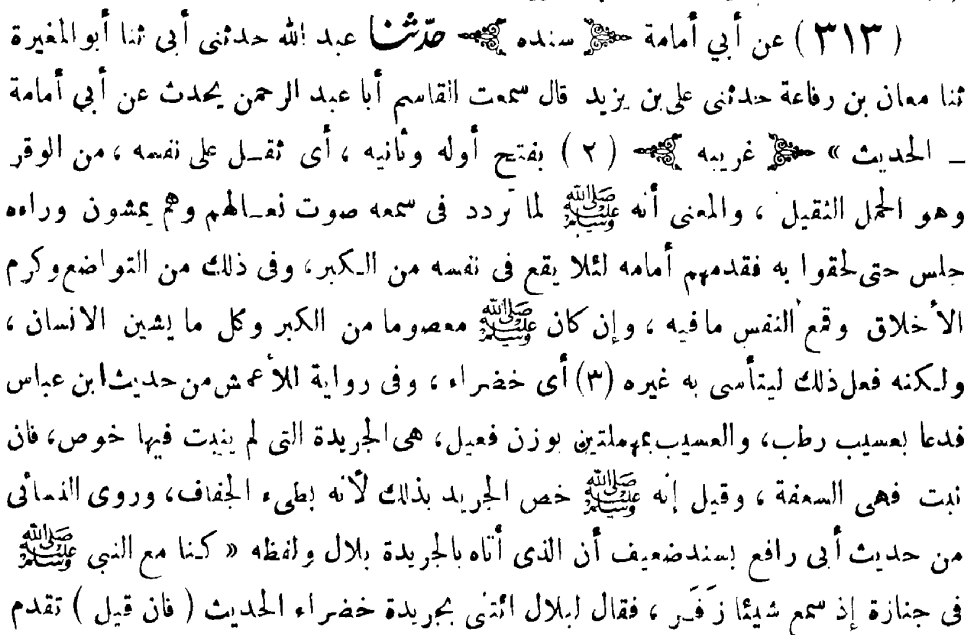 (٣١٣) عن أبي أمامة ﴿ سنده ﴾ حدّثنا عبد الله حدثنى أبى ثنا أبو المغيرة
ثنا معان بن رفاعة حدثنى على بن يزيد قال سمعت القاسم أبا عبد الرحمن يحدث عن أبي أمامة
ـ الحديث » ﴿ غريبه ﴾ (٢) بفتح أوله وثانيه ، أى ثقـل على نفسه ، من الوقر
وهو الحمل الثقيل ، والمعنى أنه ﷺ لما تردد فى سمعه صوت نعـالهم وهم يمشون وراءه
جلس حتى لحقوا به فقدمهم أمامه لئلا يقع فى نفسه من الـكبر، وفى ذلك من التواضع وكرم
الأخلاق وقمع النفس مافيه ، وإن كان ﷺ معصوما من الكبر وكل ما يشين الانسان ،
ولـكنه فعل ذلك ليتأسى به غيره (٣) أى خضراء ، وفى رواية للأعمش من حديث ابن عباس
فدعا بعسيب رطب، والعسيب بمهملتين بوزن فعيل، هى الجريدة التى لم ينبت فيها خوص، فان
نبت فهى السعفة ، وقيل إنه ﷺ خص الجريد بذلك لأنه بطىء الجفاف، وروى النسائى
من حديث أبى رافع بسند ضعيف أن الذى أتاه بالجريدة بلال ولفظه « كنا مع النبي ﷺ
فى جنازة إذ سمع شيئا زَفَـر ، فقال لبلال ائتنى بجريدة خضراء الحديث ( فان قيل ) تقدم